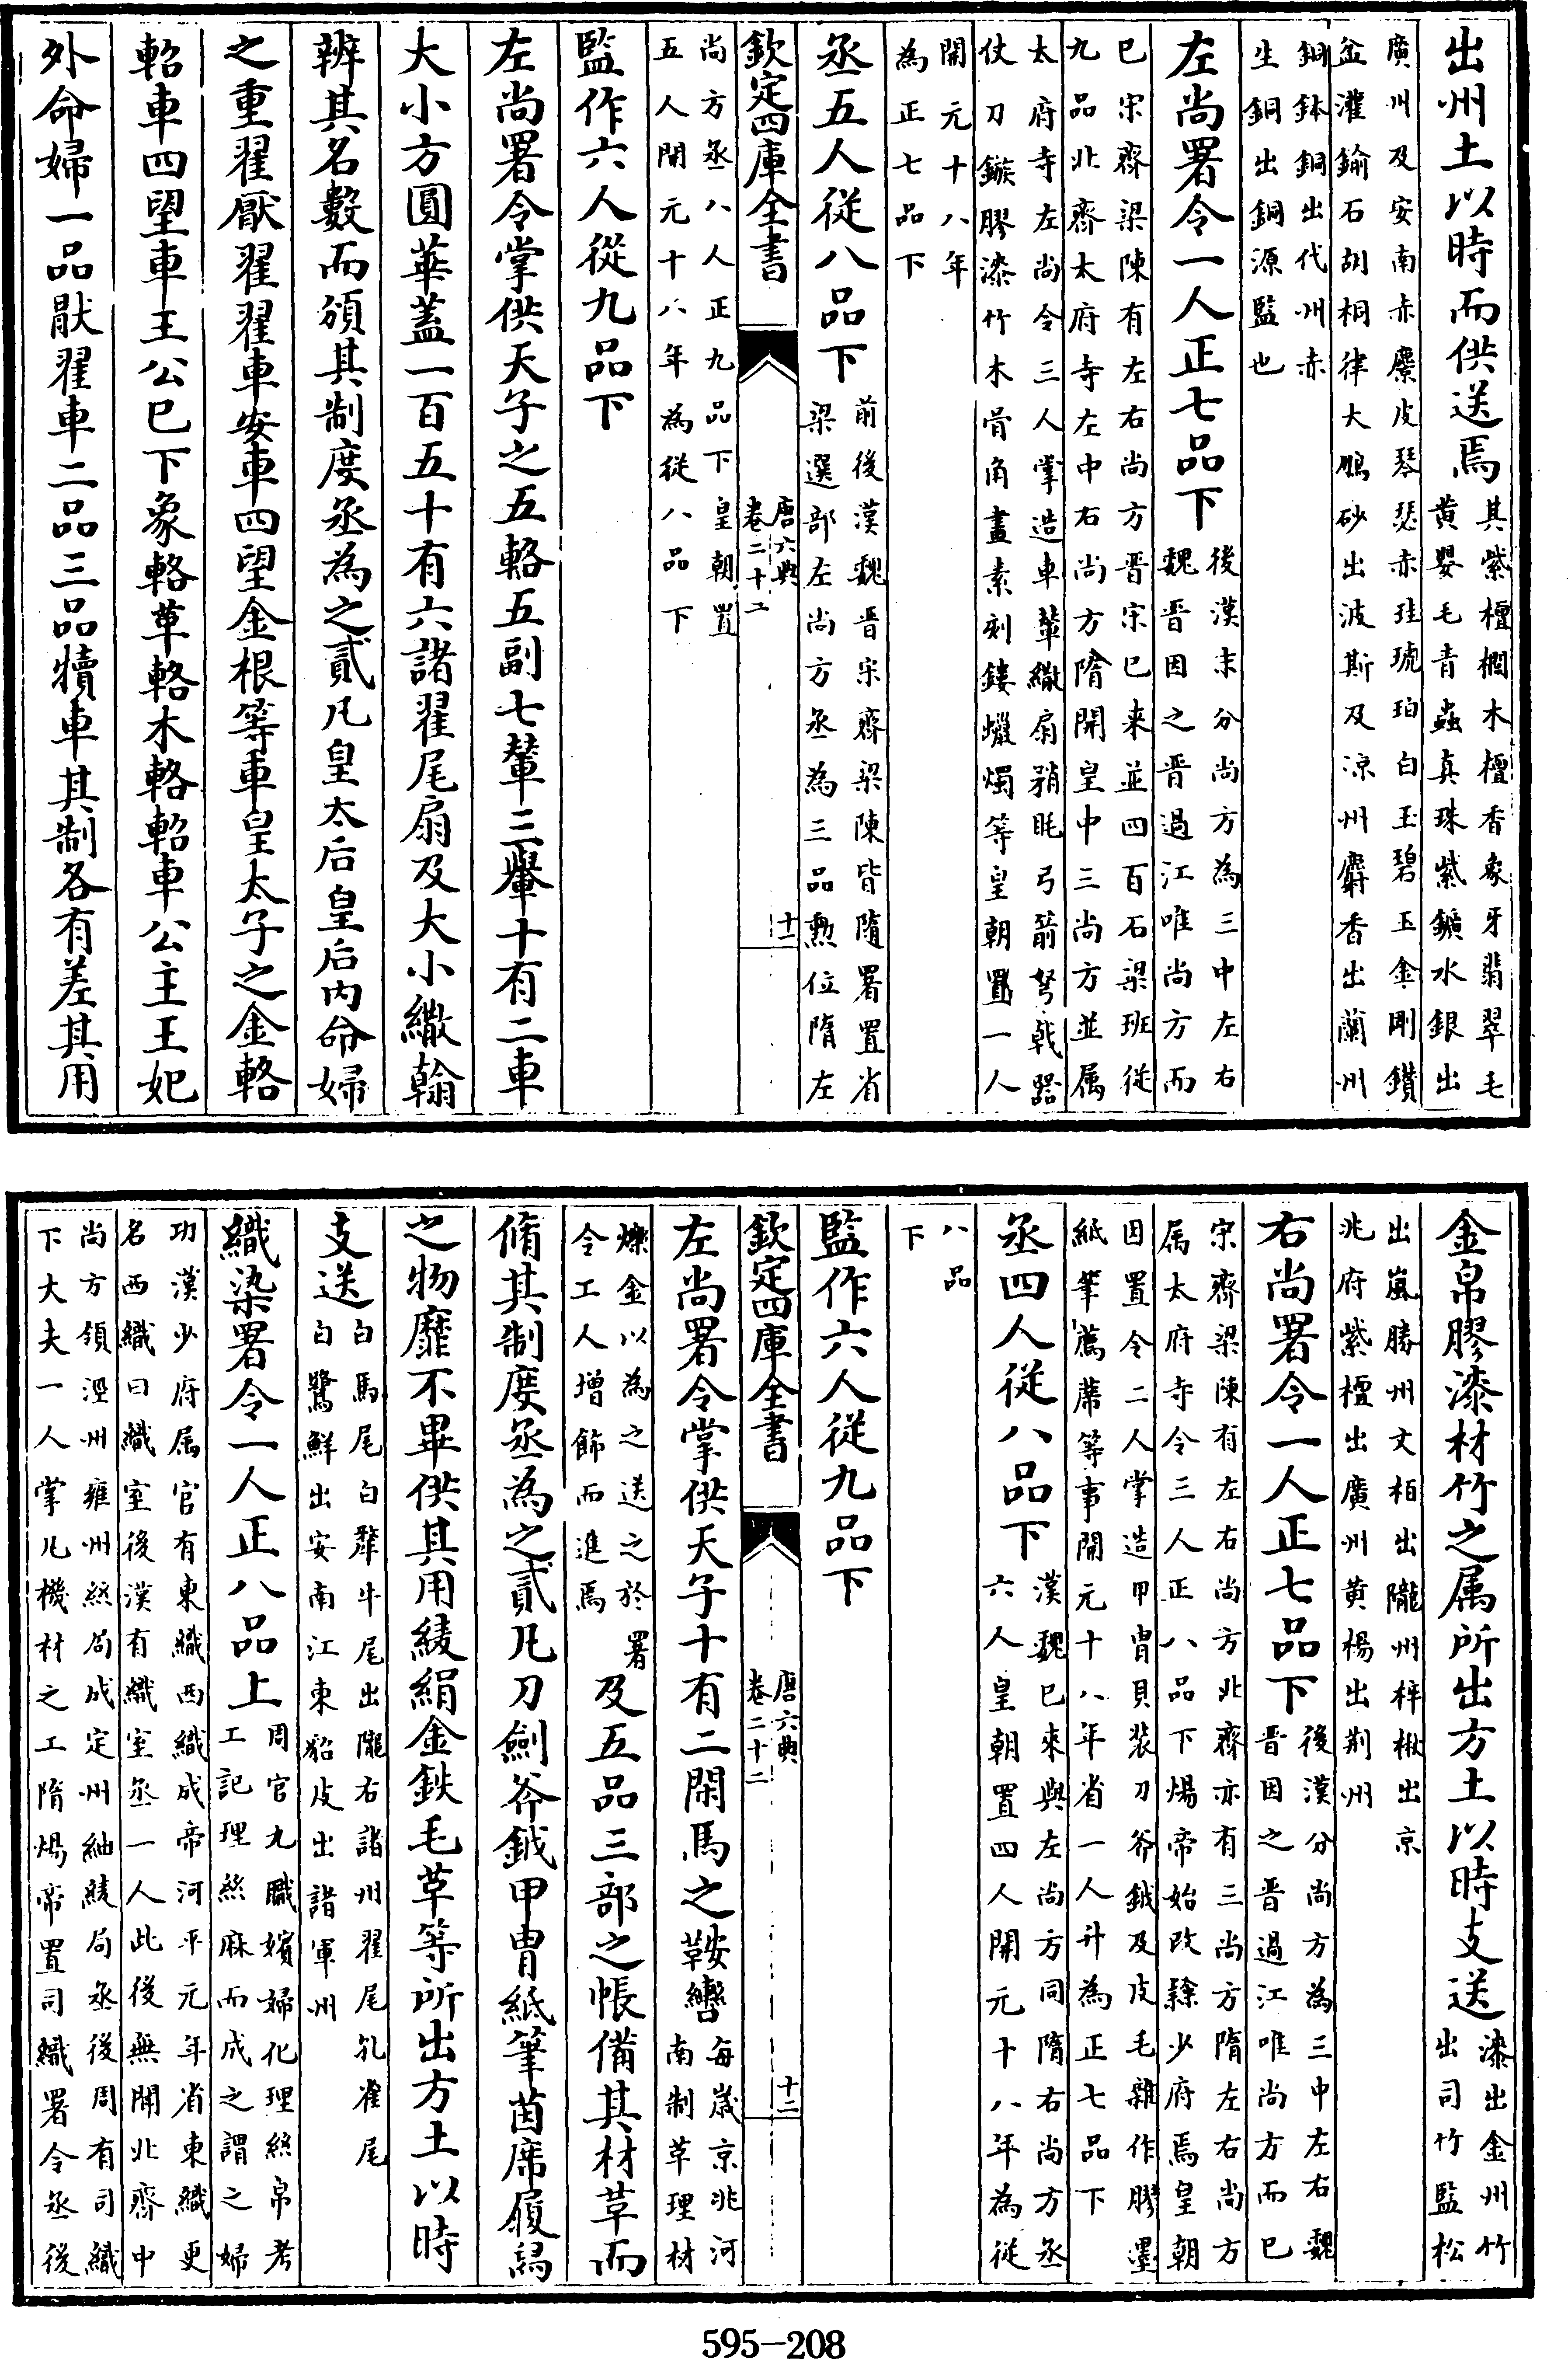 出州土以時而供送焉其紫檀櫚木檀香象牙翡翠毛
黄嬰毛青蟲真珠紫鑛水銀出
廣州及安南赤麖皮琴瑟赤珪琥珀白玉碧玉金剛鑽
盆灌鍮石胡桐律大鵬砂出波斯及凉州麝香出蘭州
銅鉢銅出代州赤
生銅出銅源監也
左尚署令一人正七品下後漢末分尚方為三中左右
魏晋因之晋過江唯尚方而
已宋齊梁陳有左右尚方晋宋已来並四百石梁班從
九品北齊太府寺左中右尚方隋開皇中三尚方並属
太府寺左尚令三人掌造車輦繖扇矟毦弓箭弩戟器
仗刀鏃膠漆竹木骨角畫素刻鏤蠟燭等皇朝置一人
開元十八年
為正七品下
丞五人從八品下前後漢魏晋宋齊梁陳皆隨署置省
梁選部左尚方丞為三品勲位隋左
欽定四庫全書
唐六典
卷二十二
十一
尚方丞八人正九品下皇朝置
五人開元十八年為從八品下
監作六人從九品下
左尚署令掌供天子之五輅五副七輦三轝十有二車
大小方圓華蓋一百五十有六諸翟尾扇及大小繖翰
辨其名數而頒其制度丞為之貳凡皇太后皇后内命婦
之重翟厭翟翟車安車四望金根等車皇太子之金輅
軺車四望車王公已下象輅革輅木輅軺車公主王妃
外命婦一品厭翟車二品三品犢車其制各有差其用
金帛膠漆材竹之属所出方土以時支送漆出金州竹
出司竹監松
出嵐勝州文栢出隴州梓楸出京
兆府紫檀出廣州黄楊出荆州
右尚署令一人正七品下後漢分尚方為三中左右魏
晋因之晋過江唯尚方而已
宋齊梁陳有左右尚方北齊亦有三尚方隋左右尚方
属太府寺令三人正八品下煬帝始改隷少府焉皇朝
因置令二人掌造甲胄具裝刀斧鉞及皮毛雜作膠墨
紙筆薦蓆等事開元十八年省一人升為正七品下
丞四人從八品下漢魏已來與左尚方同隋右尚方丞
六人皇朝置四人開元十八年為從
八品
下
監作六人從九品下
欽定四庫全書
唐六典
卷二十二
十二
左尚署令掌供天子十有二閑馬之鞍轡每歲京兆河
南制革理材
爍金以為之送之於署
令工人增飾而進焉及五品三部之帳備其材革而
脩其制度丞為之貳凡刀劍斧鉞甲胄紙筆茵席履舄
之物靡不畢供其用綾絹金鉄毛草等所出方土以時
支送白馬尾白犛牛尾出隴右諸州翟尾孔雀尾
白鷺鮮出安南江東貂皮出諸軍州
織染署令一人正八品上周官九職嬪婦化理絲帛考
工記理絲麻而成之謂之婦
功漢少府属官有東織西織成帝河平元年省東織更
名西織曰織室後漢有織室丞一人此後無聞北齊中
尚方領涇州雍州絲局成定州紬綾局丞後周有司織
下大夫一人掌凡機材之工隋煬帝置司織署令丞後
595-208